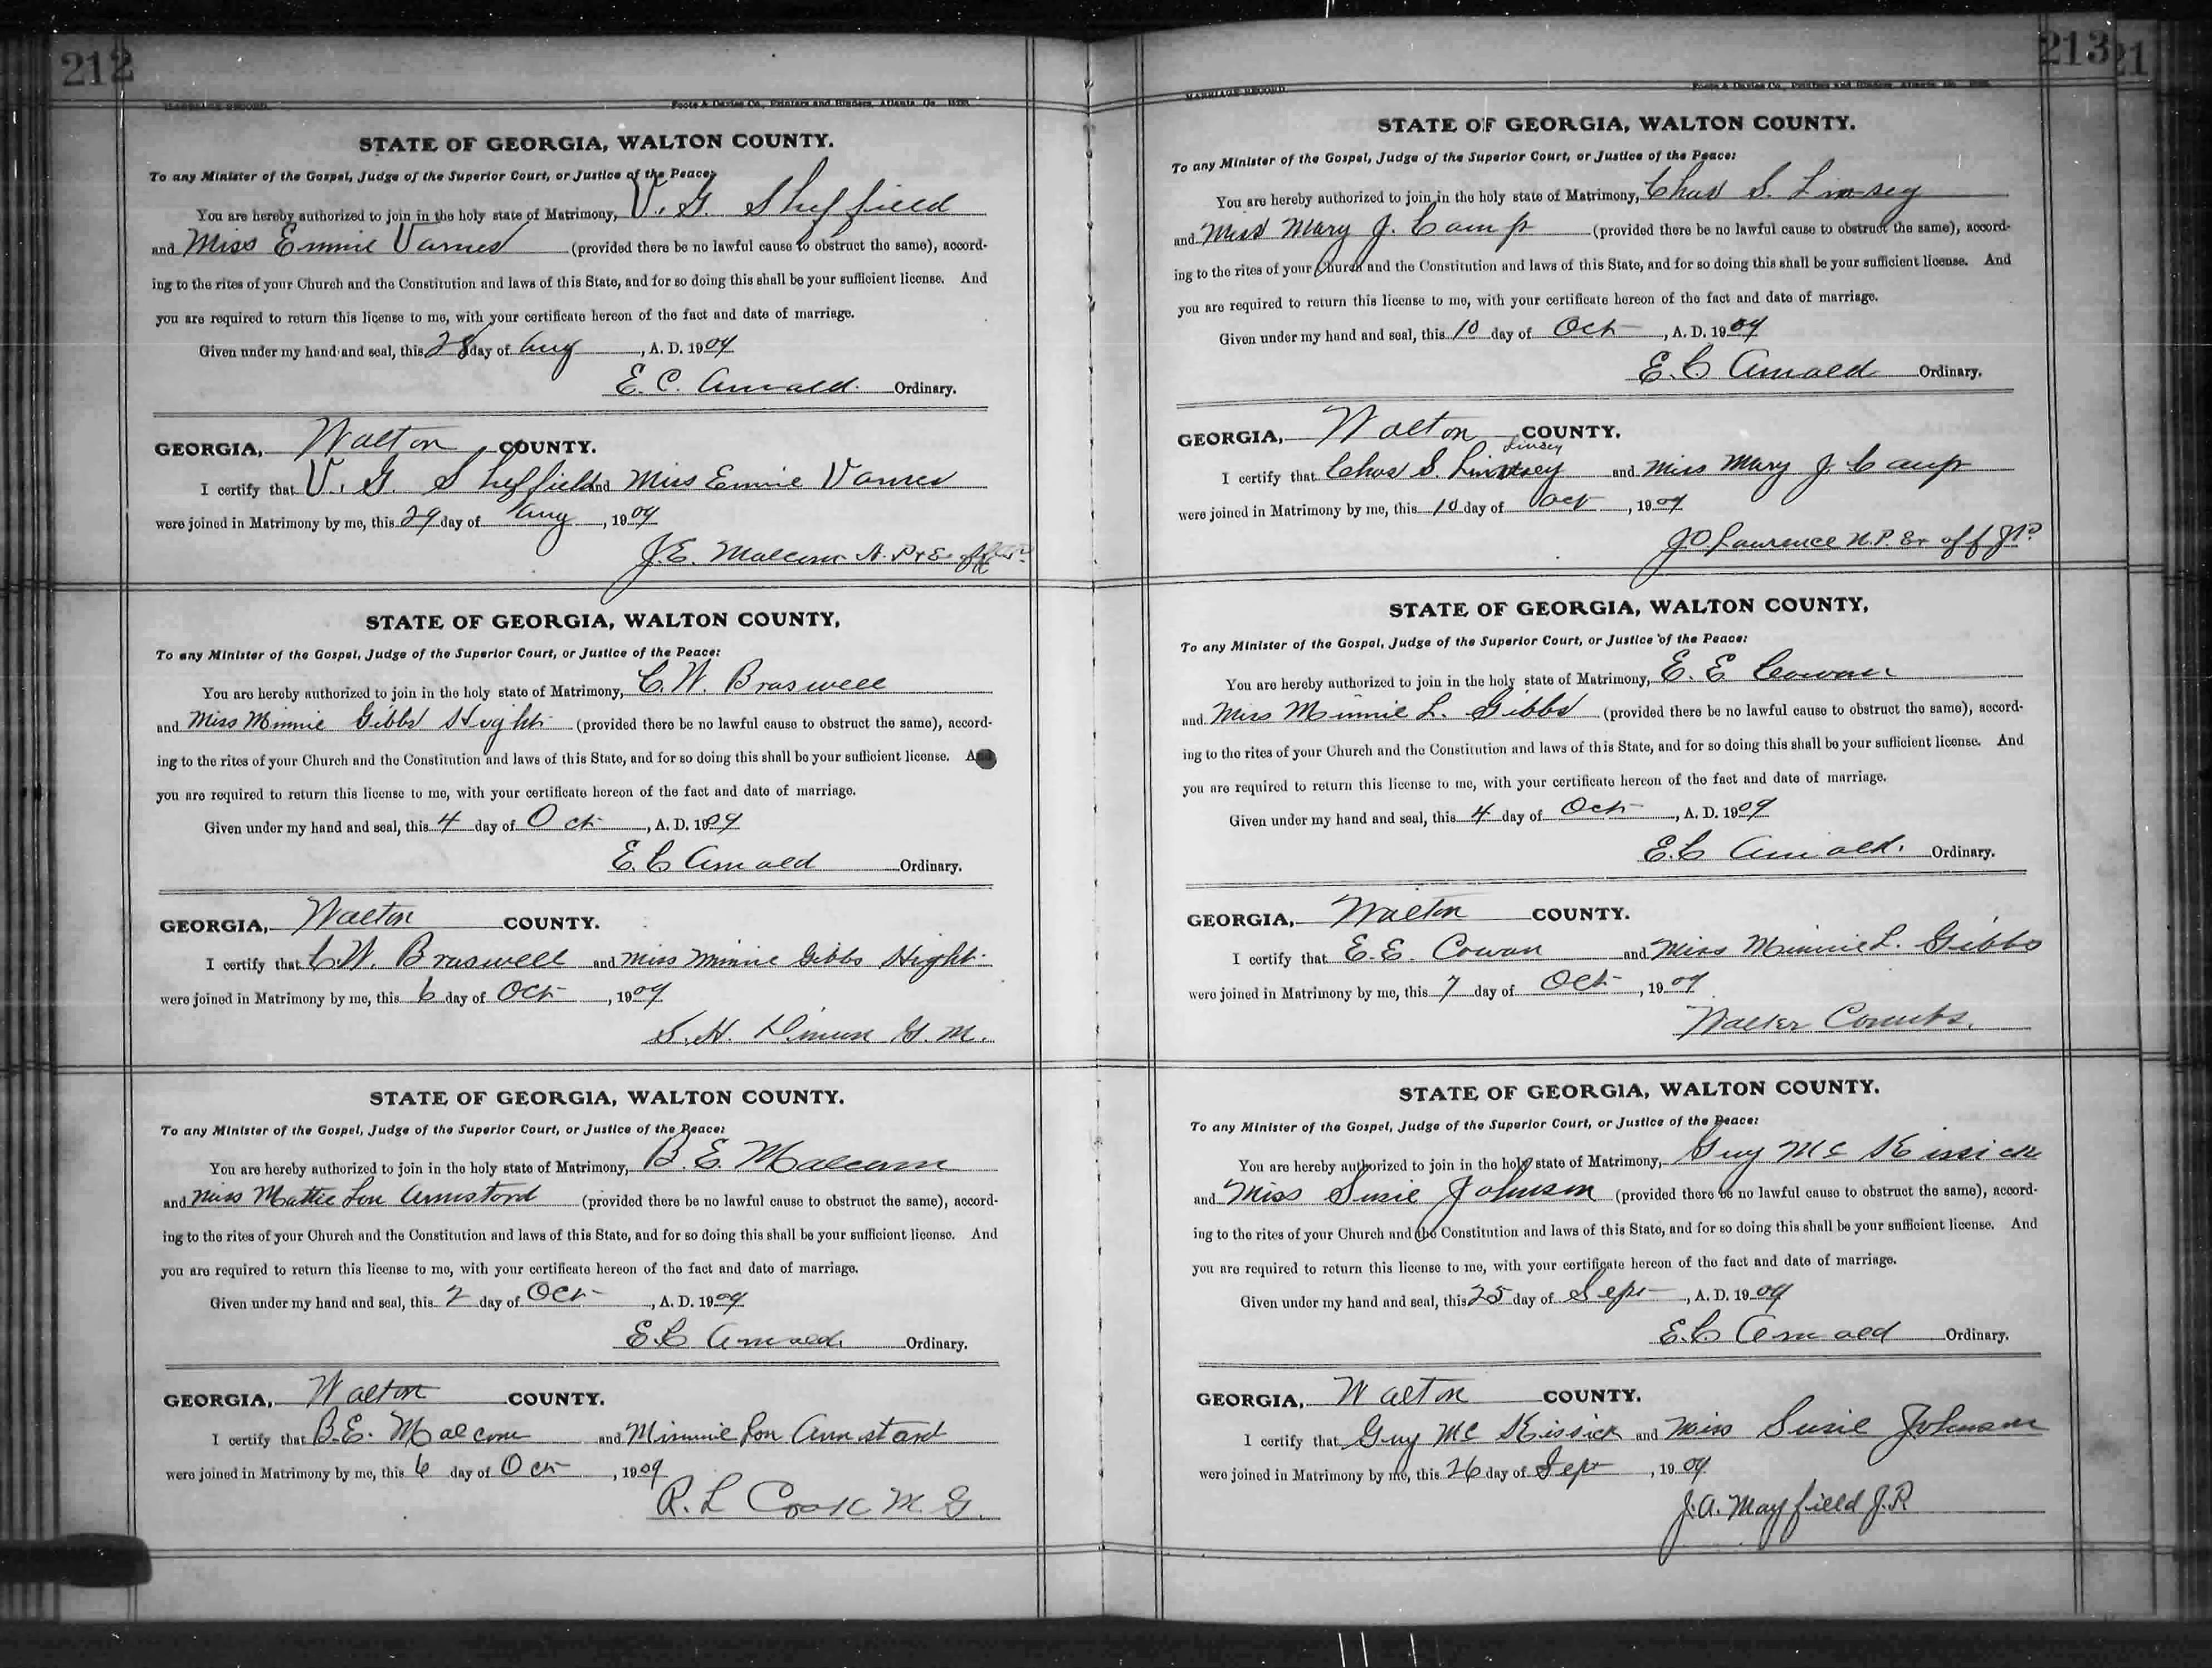 212
MARRIAGE RECORD.
Foote & Davies Co., Printers and Binders, Atlanta, Ga.
STATE OF GEORGIA, WALTON COUNTY.
To any Minister of the Gospel, Judge of the Superior Court, or Justice of the Peace:
You are hereby authorized to join in the holy state of Matrimony, V. G. Sheffield
and Miss Emmie Varner (provided there be no lawful cause to obstruct the same), accord-
ing to the rites of your Church and the Constitution and laws of this State, and for so doing this shall be your sufficient license. And
you are required to return this license to me, with your certificate hereon of the fact and date of marriage.
Given under my hand and seal, this 28 day of Aug, A. D. 1909
E. C. Arnold Ordinary.
GEORGIA, Walton COUNTY.
I certify that V. G. Sheffield and Miss Emmie Varner
were joined in Matrimony by me, this 29 day of Aug, 1909
J. E. Malcom N. P. & Ex off
STATE OF GEORGIA, WALTON COUNTY.
To any Minister of the Gospel, Judge of the Superior Court, or Justice of the Peace:
You are hereby authorized to join in the holy state of Matrimony, C. W. Braswell
and Miss Minnie Gibbs Hight (provided there be no lawful cause to obstruct the same), accord-
ing to the rites of your Church and the Constitution and laws of this State, and for so doing this shall be your sufficient license. And
you are required to return this license to me, with your certificate hereon of the fact and date of marriage.
Given under my hand and seal, this 4 day of Oct, A. D. 1909
E. C. Arnold Ordinary.
GEORGIA, Walton COUNTY.
I certify that C. W. Braswell and Miss Minnie Gibbs Hight
were joined in Matrimony by me, this 6 day of Oct, 1909
S. H. G. M.
STATE OF GEORGIA, WALTON COUNTY.
To any Minister of the Gospel, Judge of the Superior Court, or Justice of the Peace:
You are hereby authorized to join in the holy state of Matrimony, B. E. Malcom
and Miss Mattie Lou Armistord (provided there be no lawful cause to obstruct the same), accord-
ing to the rites of your Church and the Constitution and laws of this State, and for so doing this shall be your sufficient license. And
you are required to return this license to me, with your certificate hereon of the fact and date of marriage.
Given under my hand and seal, this 2 day of Oct, A. D. 1909
E. C. Arnold Ordinary.
GEORGIA, Walton COUNTY.
I certify that B. E. Malcom and Minnie Lou Armistard
were joined in Matrimony by me, this 6 day of Oct, 1909
R. L. Cook M. G.
213
21
MARRIAGE RECORD
Foote & Davies Co., Printers and Binders, Atlanta, Ga.
STATE OF GEORGIA, WALTON COUNTY.
To any Minister of the Gospel, Judge of the Superior Court, or Justice of the Peace:
You are hereby authorized to join in the holy state of Matrimony, Chas S. Linsey
and Miss Mary J. Camp (provided there be no lawful cause to obstruct the same), accord-
ing to the rites of your Church and the Constitution and laws of this State, and for so doing this shall be your sufficient license. And
you are required to return this license to me, with your certificate hereon of the fact and date of marriage.
Given under my hand and seal, this 10 day of Oct, A. D. 1909
E. C. Arnold Ordinary.
GEORGIA, Walton COUNTY.
Linsey
I certify that Chas S. Linsey and Miss Mary J. Camp
were joined in Matrimony by me, this 10 day of Oct, 1909
J. O. Lawrence N. P. Ex off J. P.
STATE OF GEORGIA, WALTON COUNTY,
To any Minister of the Gospel, Judge of the Superior Court, or Justice of the Peace:
You are hereby authorized to join in the holy state of Matrimony, E. E. Cowan
and Miss Minnie L. Gibbs (provided there be no lawful cause to obstruct the same), accord-
ing to the rites of your Church and the Constitution and laws of this State, and for so doing this shall be your sufficient license. And
you are required to return this license to me, with your certificate hereon of the fact and date of marriage.
Given under my hand and seal, this 4 day of Oct, A. D. 1909
E. C. Arnold. Ordinary.
GEORGIA, Walton COUNTY.
I certify that E. E. Cowan and Miss Minnie L. Gibbs
were joined in Matrimony by me, this 7 day of Oct, 1909
Walter Combs.
STATE OF GEORGIA, WALTON COUNTY.
To any Minister of the Gospel, Judge of the Superior Court, or Justice of the Peace:
You are hereby authorized to join in the holy state of Matrimony, Guy Mc Kissick
and Miss Susie Johnson (provided there be no lawful cause to obstruct the same), accord-
ing to the rites of your Church and the Constitution and laws of this State, and for so doing this shall be your sufficient license. And
you are required to return this license to me, with your certificate hereon of the fact and date of marriage.
Given under my hand and seal, this 25 day of Sept, A. D. 1909
E. C. Arnold Ordinary.
GEORGIA, Walton COUNTY.
I certify that Guy Mc Kissick and Miss Susie Johnson
were joined in Matrimony by me, this 26 day of Sept, 1909
J. A. Mayfield J. P.